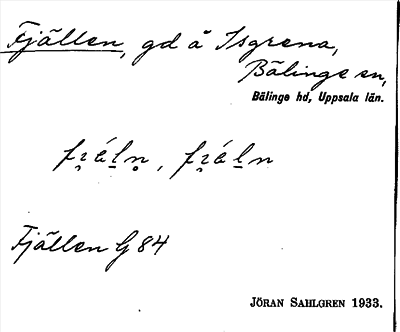 Fjällen, gd å Isgrena,
Bälinge sn,
Bälinge hd, Uppsala län.
Fjällen G 84
JÖRAN SAHLGREN 1933.